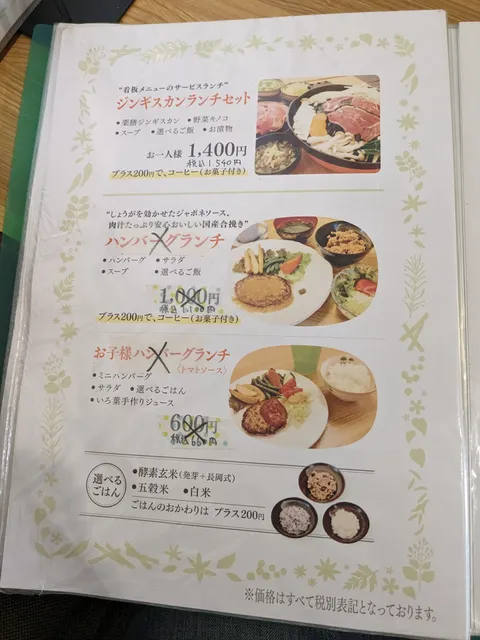 “看板メニューのサービスランチ”
ジンギスカンランチセット
●薬膳ジンギスカン ●野菜キノコ
●スープ ●選べるご飯 ●お漬物
お一人様 1,400円
税込1,540円
プラス200円で、コーヒー(お菓子付き)
“しょうがを効かせたジャポネソース、
肉汁たっぷり安心おいしい国産合挽き”
ハンバーグランチ
●ハンバーグ ●サラダ
●スープ ●選べるご飯
1,000円
税込1,100円
プラス200円で、コーヒー(お菓子付き)
お子様ハンバーグランチ
〈トマトソース〉
●ミニハンバーグ
●サラダ ●選べるごはん
●いろ葉手作りジュース
600円
税込660円
選べる
ごはん
●酵素玄米(発芽+長岡式)
●五穀米 ●白米
ごはんのおかわりは プラス200円
※価格はすべて税別表記となっております。